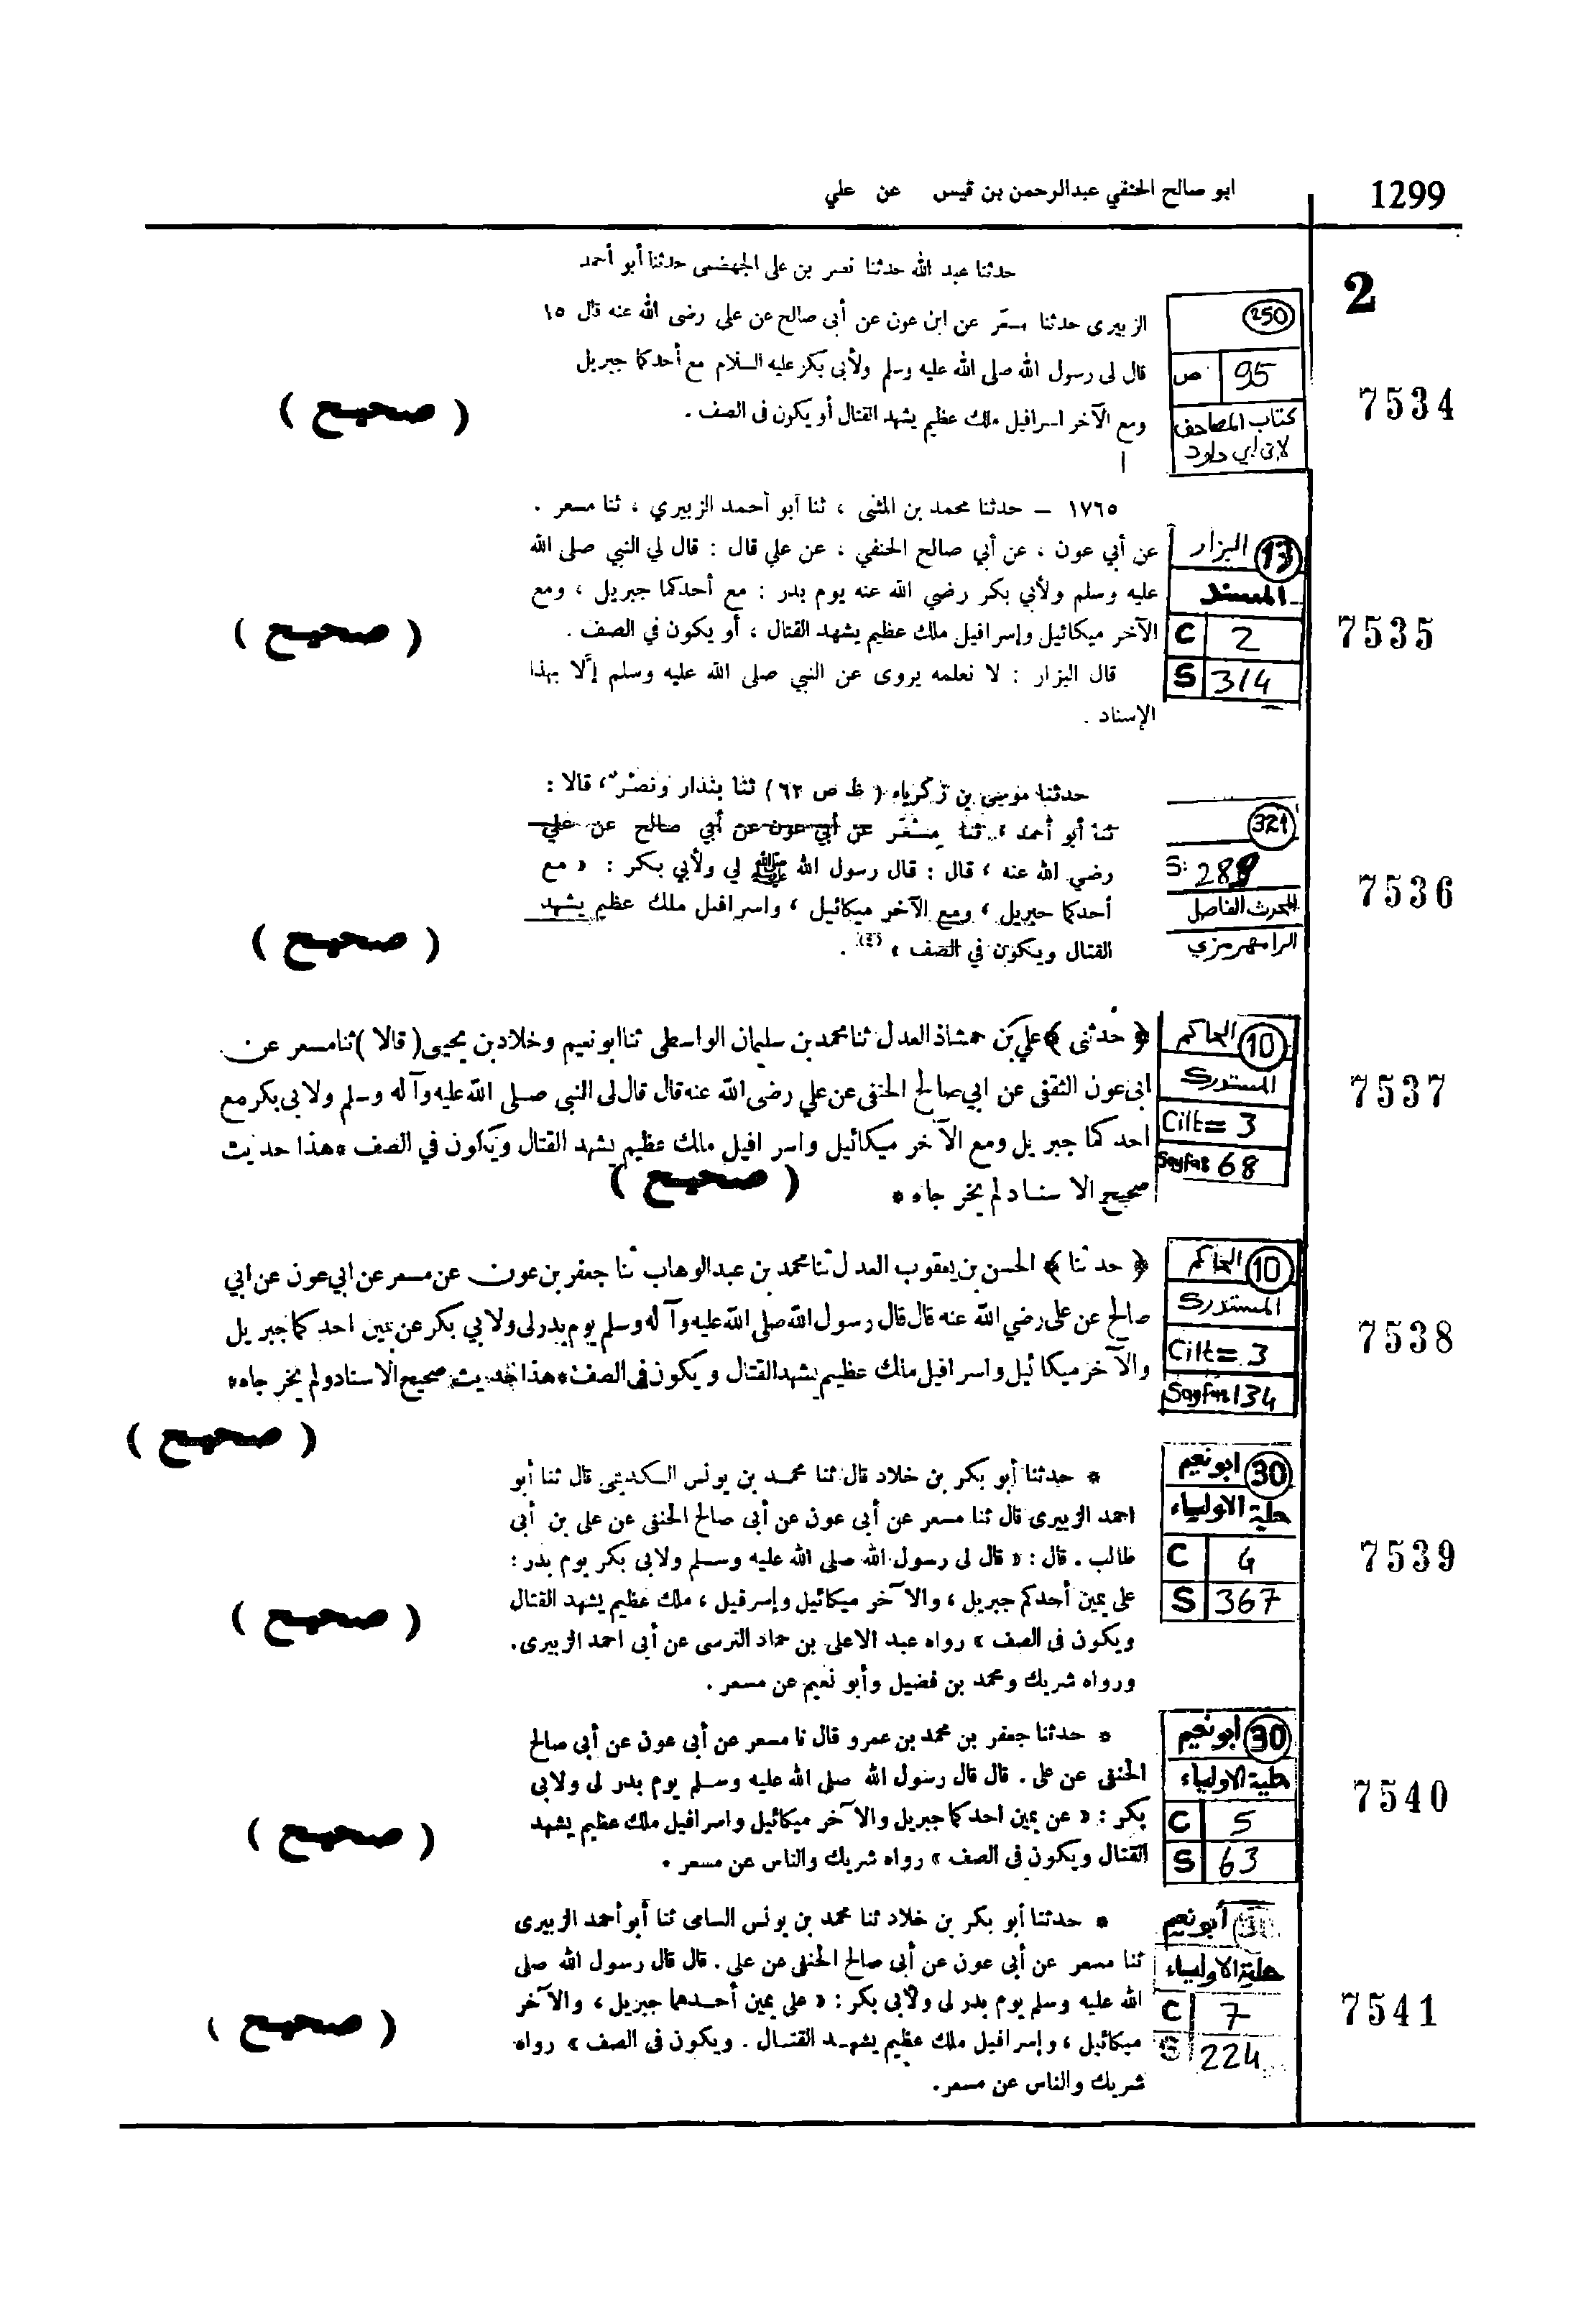 1299
ابو صالح الحنفي عبدالرحمن بن قيس عن علي
2
حدثنا عبد الله حدثنا نصر بن على الجهضمى حدثنا أبو أحمد
الزبيرى حدثنا مسعر عن ابن عون عن أبى صالح عن على رضى الله عنه قال ١٥
قال لى رسول الله صلى الله عليه وسلم ولأبى بكر عليه السلام مع أحدكما جبريل
ومع الآخر اسرافيل ملك عظيم يشهد القتال أو يكون فى الصف .
250
ص 95
كتاب المصاحف
لابن ابي داود
7534
( صحيح )
١٧٦٥ – حدثنا محمد بن المثنى ، ثنا أبو أحمد الزبيري ، ثنا مسعر .
عن أبي عون ، عن أبي صالح الحنفي ، عن علي قال : قال لي النبي صلى الله
عليه وسلم ولأبي بكر رضي الله عنه يوم بدر : مع أحدكما جبريل ، ومع
الآخر ميكائيل وإسرافيل ملك عظيم يشهد القتال ، أو يكون في الصف .
قال البزار : لا نعلمه يروى عن النبي صلى الله عليه وسلم إلّا بهذا
الإسناد .
البزار 13
المسند
C 2
S 314
7535
( صحيح )
حدثنا موسى بن زكرياء ( ظ ص ٦٢ ) ثنا بندار ونصر ، قالا :
ثنا أبو أحمد ، ثنا مسعر عن أبي عون عن أبي صالح عن علي
رضي الله عنه ، قال : قال رسول الله ﷺ لي ولأبي بكر : « مع
أحدكما جبريل ، ومع الآخر ميكائيل ، واسرافيل ملك عظيم يشهد
القتال ويكون في الصف » (٤) .
321
S: 288
المحدث الفاصل
الرامهرمزي
7536
( صحيح )
﴿ حدثنى ﴾ علي بن حمشاذ العدل ثنا محمد بن سليمان الواسطى ثنا ابو نعيم وخلاد بن يحيى ( قالا ) ثنا مسعر عن
ابى عون الثقفى عن ابي صالح الحنفى عن علي رضى الله عنه قال قال لى النبى صلى الله عليه وآله وسلم ولابى بكر مع
احد كما جبريل ومع الآخر ميكائيل واسرافيل ملك عظيم يشهد القتال ويكون في الصف * هذا حديث
صحيح الاسناد لم يخرجاه *
الحاكم 10
المستدرك
Cilt= 3
Sayfa: 68
7537
( صحيح )
﴿ حدثنا ﴾ الحسن بن يعقوب العدل ثنا محمد بن عبدالوهاب ثنا جعفر بن عون عن مسعر عن ابي عون عن ابي
صالح عن على رضي الله عنه قال قال رسول الله صلى الله عليه وآله وسلم يوم بدر لى ولابي بكر عن يمين احد كما جبريل
والآخر ميكائيل واسرافيل ملك عظيم يشهد القتال ويكون فى الصف * هذا حديث صحيح الاسناد ولم يخرجاه *
الحاكم 10
المستدرك
Cilt= 3
Sayfa: 134
7538
( صحيح )
* حدثنا أبو بكر بن خلاد قال ثنا محمد بن يونس الكديمى قال ثنا أبو
احمد الزبيرى قال ثنا مسعر عن أبى عون عن أبى صالح الحنفى عن على بن أبى
طالب . قال : « قال لى رسول الله صلى الله عليه وسلم ولابى بكر يوم بدر :
على يمين أحدكم جبريل ، والآخر ميكائيل وإسرفيل ، ملك عظيم يشهد القتال
ويكون فى الصف » رواه عبد الاعلى بن حماد النرسى عن أبى احمد الزبيرى .
ورواه شريك ومحمد بن فضيل وأبو نعيم عن مسعر .
ابو نعيم 30
حلية الاولياء
C 4
S 367
7539
( صحيح )
* حدثنا جعفر بن محمد بن عمرو قال نا مسعر عن أبى عون عن أبى صالح
الحنفى عن على . قال قال رسول الله صلى الله عليه وسلم يوم بدر لى ولابى
بكر : « عن يمين احدكما جبريل والآخر ميكائيل واسرافيل ملك عظيم يشهد
القتال ويكون فى الصف » رواه شريك والناس عن مسعر .
أبو نعيم 30
حلية الاولياء
C 5
S 63
7540
( صحيح )
* حدثنا أبو بكر بن خلاد ثنا محمد بن يونس السامى ثنا أبو أحمد الزبيرى
ثنا مسعر عن أبى عون عن أبى صالح الحنفى عن على . قال قال رسول الله صلى
الله عليه وسلم يوم بدر لى ولأبى بكر : « على يمين أحدهما جبريل ، والآخر
ميكائيل ، وإسرافيل ملك عظيم يشهد القتال . ويكون فى الصف » رواه
شريك والناس عن مسعر .
أبو نعيم 30
حلية الاولياء
C 7
S 224
7541
( صحيح )